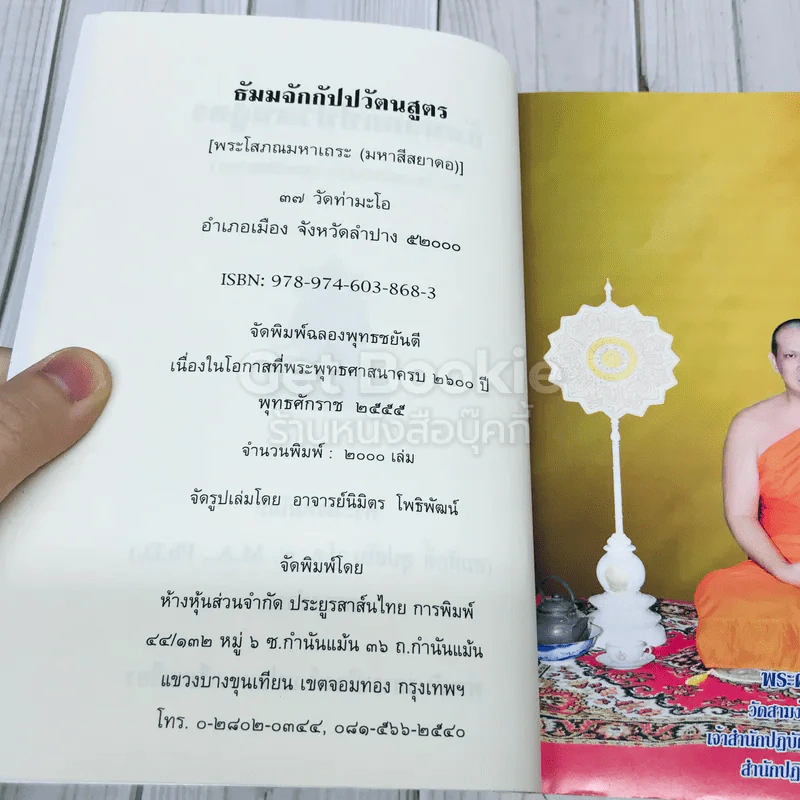 ธัมมจักกัปปวัตนสูตร
[พระโสภณมหาเถระ (มหาสีสยาดอ)]
๓๗ วัดท่ามะโอ
อำเภอเมือง จังหวัดลำปาง ๕๒๐๐๐
ISBN: 978-974-603-868-3
จัดพิมพ์ฉลองพุทธชยันตี
เนื่องในโอกาสที่พระพุทธศาสนาครบ ๒๖๐๐ ปี
พุทธศักราช ๒๕๕๕
จำนวนพิมพ์ : ๒๐๐๐ เล่ม
จัดรูปเล่มโดย อาจารย์นิมิตร โพธิพัฒน์
จัดพิมพ์โดย
ห้างหุ้นส่วนจำกัด ประยูรสาส์นไทย การพิมพ์
๔๔/๑๓๒ หมู่ ๖ ซ.กำนันแม้น ๓๖ ถ.กำนันแม้น
แขวงบางขุนเทียน เขตจอมทอง กรุงเทพฯ
โทร. ๐-๒๘๐๒-๐๓๔๔, ๐๘๑-๕๖๖-๒๕๔๐
Get Bookie
ร้านหนังสือบุ๊คกี้
วัดสามง่
เจ้าสำนักปฏิบั
สำนักปฏิ